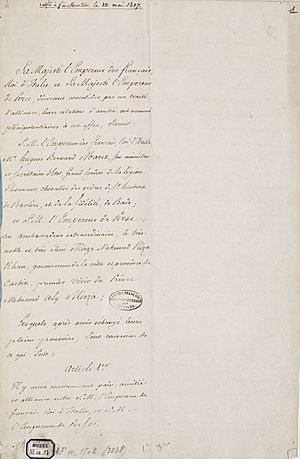 1
Sa Majesté l'Empereur des français,
Roi d'Italie et Sa Majesté l'Empereur
de Perse désirant consolider par un traité
d'alliance, leurs relations d'amitié, ont nommé
plénipotentiaires à cet effet, savoir:
S. M. l'Empereur des français, Roi d'Italie
Mr. hugues Bernard Maret, son ministre
et secrétaire d'état, Grand Cordon de la légion
d'honneur, chevalier des ordres de St. hubert
de Bavière, et de la fidélité, de Bade,
et S. M. l'Empereur de Perse,
son ambassadeur extraordinaire, le très
noble et très élevé Mirza Mahomed Riza
Khan, gouverneur de la ville et province de
Casbin, premier visir du Prince
Mehemed Aly Mirza;
Lesquels après avoir échangé leurs
pleins pouvoirs, sont convenus de
ce qui suit:
Article 1er
Il y aura constamment paix, amitié
et alliance entre S. M. l'Empereur des
français, Roi d'Italie, et S. M.
l'Empereur de Perse.
MUSÉE
AE III